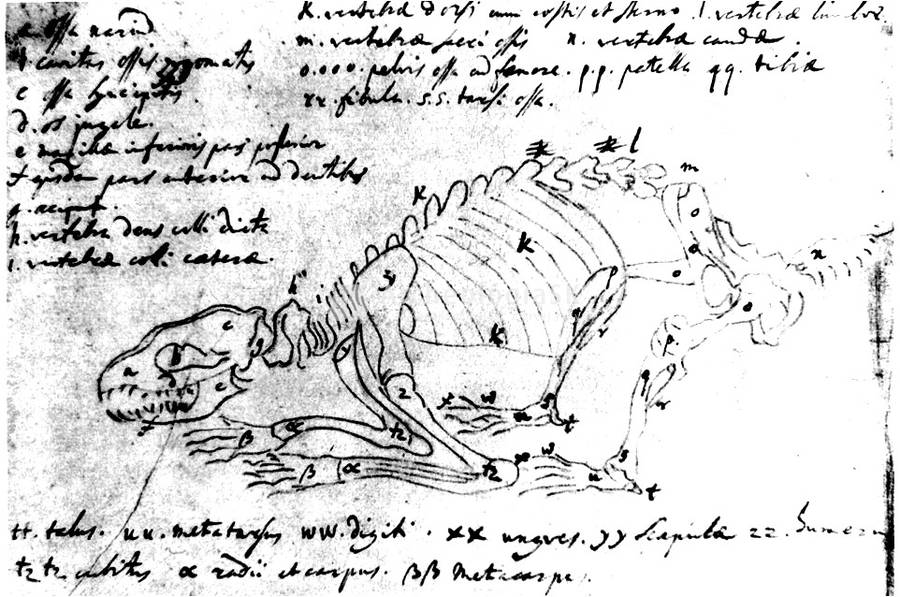 a. ossa narium
b. cavitas ossis zygomatis
c ossa sincipitis
d. os jugale.
e maxillæ inferioris pars posterior
f ejusdem pars anterior cum dentibus
g.
h. vertebra dens colli dicta
i. vertebræ colli cæteræ.
K. vertebræ dorsi cum costis et sterno. l. vertebræ lumbor.
m. vertebræ sacri ossis n. vertebræ caudæ.
o.o.o.o. pelvis ossa ad femora. p.p. patella qq. tibiæ
rr. fibula. s.s. tarsi ossa.
K
l
m
o
o
o
o
n
K
K
y
h
i
c
b
a
d
e
g
f
p
q
r
p
q
r
z
w
u
s
t
w
u
s
t
x
tz
tz
α
β
β
α
tt. talus. uu. metatarsus ww. digiti. xx ungves. yy Scapulæ zz. humerus
tz tz cubitus α radii et carpus. ββ Metacarpus.